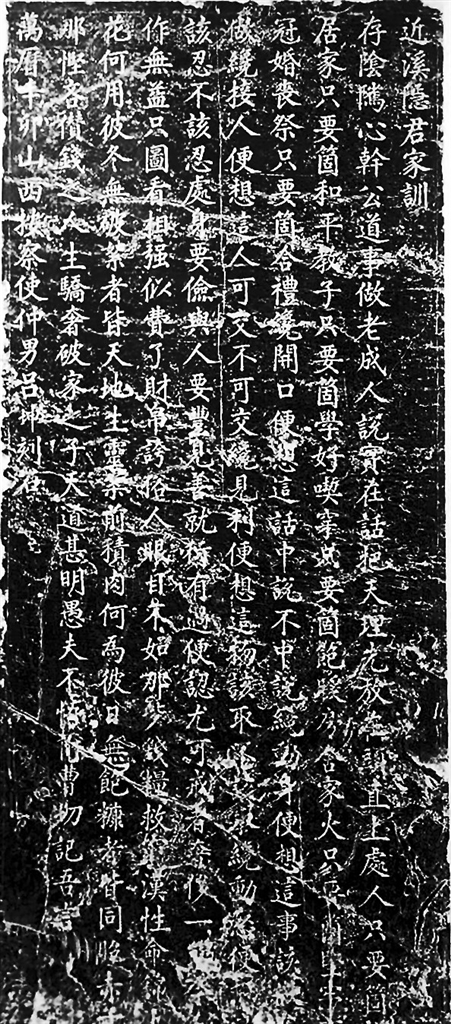 近溪隱君家訓
存陰隲心幹公道事做老成人說實在話把天理先放在頭直上處人只要箇
居家只要箇和平教子只要箇學好喫穿只要箇飽煖房舍家火只
冠婚喪祭只要箇合禮纔開口便想這話中說不中說纔動身便想這事該
做纔接人便想這人可交不可交纔見利便想這物該取纔動怒便
該忍不該忍處身要儉與人要豐見善就行有過便認尤可戒者
作無益只圖看相强似費了財帛誇俗人眼目不如那些錢糧救窮漢性命
花何用彼冬無破絮者皆天地生靈案前積肉何為彼日無飽糠者皆同胞赤
那慳吝儹錢之人生驕奢破家之子大道甚明愚夫不悟爾曹切記吾言
萬曆辛卯山西按察使仲男呂坤刻石